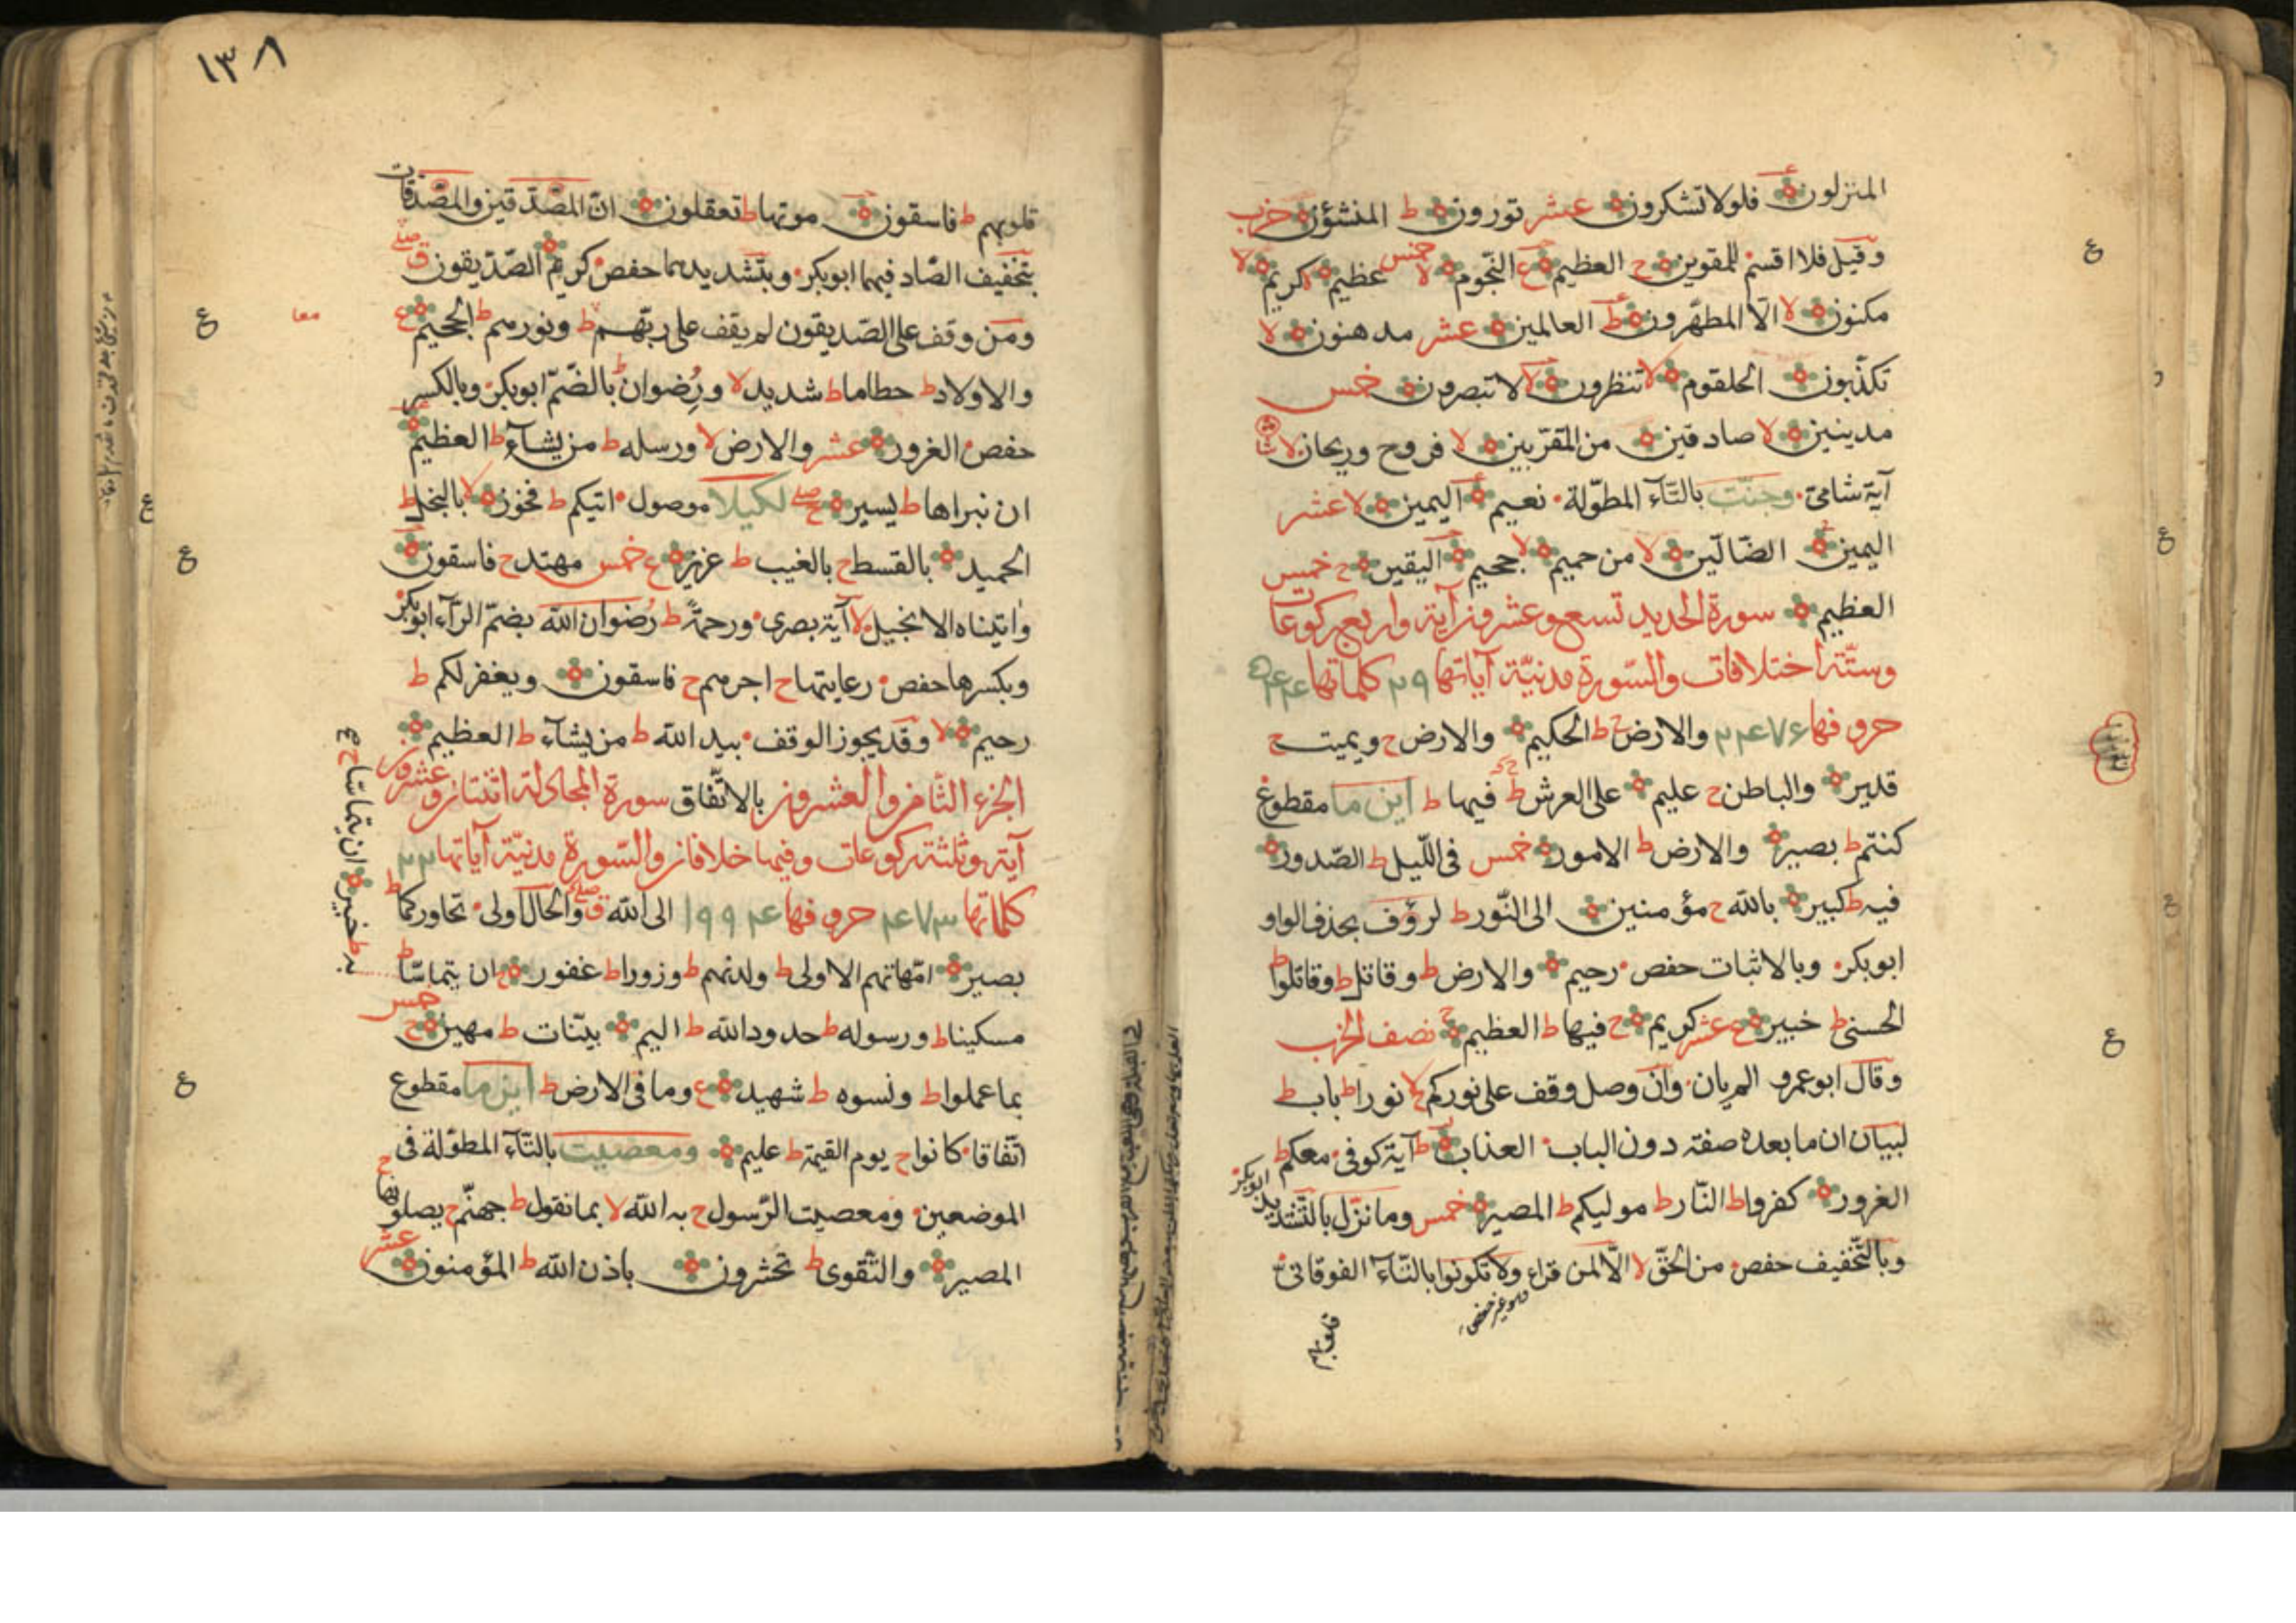 المنزلون فلولا تشكرون عشر تورون ط المنشؤن حزب
وقيل فلا اقسم للمقوين ح العظيم ع النجوم لا خمس عظيم لا كريم لا
مكنون لا الّا المطهّرون ط العالمين عشر مدهنون لا
تكذّبون الحلقوم لا تنظرون لا لا تبصرون خمس
مدينين لا صادقين من المقرّبين لا فروح وريحان لا
آية شامىّ وجنّت بالتّاء المطوّلة نعيم اليمين لا عشر
اليمين الضّالّين لا من حميم لا جحيم اليقين ح خمس
العظيم سورة الحديد تسع وعشرون آية واربع ركوعات
وستّة اختلافات والسّورة مدنيّة آياتها ٢٩ كلماتها ۵۴۴
حروفها ٢۴٧۶ والارض ح ط الحكيم والارض ح ويميت ح
قدير والباطن ح عليم على العرش ط فيها ط اين ما مقطوع
كنتم ط بصير والارض ط الامور خمس فى اللّيل ط الصّدور
فيه ط كبير بالله ح مؤمنين الى النّور ط لرؤف بحذف الواو
ابوبكر وبالاثبات حفص رحيم والارض ط وقاتل ط وقاتلوا ط
الحسنى ط خبير ع عشر كريم ح فيها ط العظيم ح نصف الحزب
وقال ابوعمرو الم يان وان وصل وقف على نوركم لا نورا ط باب ط
لبيان ان ما بعده صفة دون الباب العذاب ط آية كوفى معكم ط
الغرور كفروا ط النّار ط موليكم ط المصير خمس وما نزّل بالتّشديد ابوبكر
وبالتّخفيف حفص من الحقّ لا الّا لمن قراء ولا تكونوا بالتّاء الفوقانى
وهو غير حفص
قلوبهم
١٣٨
قلوبهم ط فاسقون موتها ط تعقلون انّ المصّدّقين والمصّدّقات
بتخفيف الصّاد فيهما ابوبكر وبتشديدهما حفص كريم الصّدّيقون ق صلے
ومن وقف على الصّدّيقون لم يقف على ربّهم ط ونورهم ط الجحيم ع
والاولاد ط حطاما ط شديد لا ورضوان ط بالضّمّ ابوبكر وبالكسر
حفص الغرور عشر والارض لا ورسله ط من يشاء ط العظيم
ان نبراها ط يسير ح صلے لكيلا موصول اتيكم ط فخور لا بالبخل ط
الحميد بالقسط ح بالغيب ط عزيز ع خمس مهتد ح فاسقون
واتيناه الانجيل لا آية بصرى ورحمة ط رضوان الله بضمّ الرّاء ابوبكر
وبكسرها حفص رعايتها ح اجرهم ح فاسقون ويغفر لكم ط
رحيم لا وقد يجوز الوقف بيد الله ط من يشاء ط العظيم
الجزء الثّامن والعشرون بالاتّفاق سورة المجادلة اثنتان وعشرون
آية وثلثة ركوعات وفيها خلافان والسّورة مدنيّة آياتها ٢٢
كلماتها ۴٧٣ حروفها ١٩٩۴ الى الله ق صلے والحال اولى تحاوركما ط
بصير امّهاتهم الاولى ط ولدنهم ط وزورا ط غفور ان يتماسّا ط
مسكينا ط ورسوله ط حدود الله ط اليم بيّنات ط مهين ح خمس
بما عملوا ط ونسوه ط شهيد ع وما فى الارض ط اين ما مقطوع
اتّفاقا كانوا ح يوم القيمة ط عليم ومعصيت بالتّاء المطوّلة فى
الموضعين ومعصيت الرّسول ح به الله لا بما نقول ط جهنّم ح يصلونها ح
المصير والتّقوى ط تحشرون باذن الله ط المؤمنون عشر
به ط خبير ان يتماسّا ح ع
معا